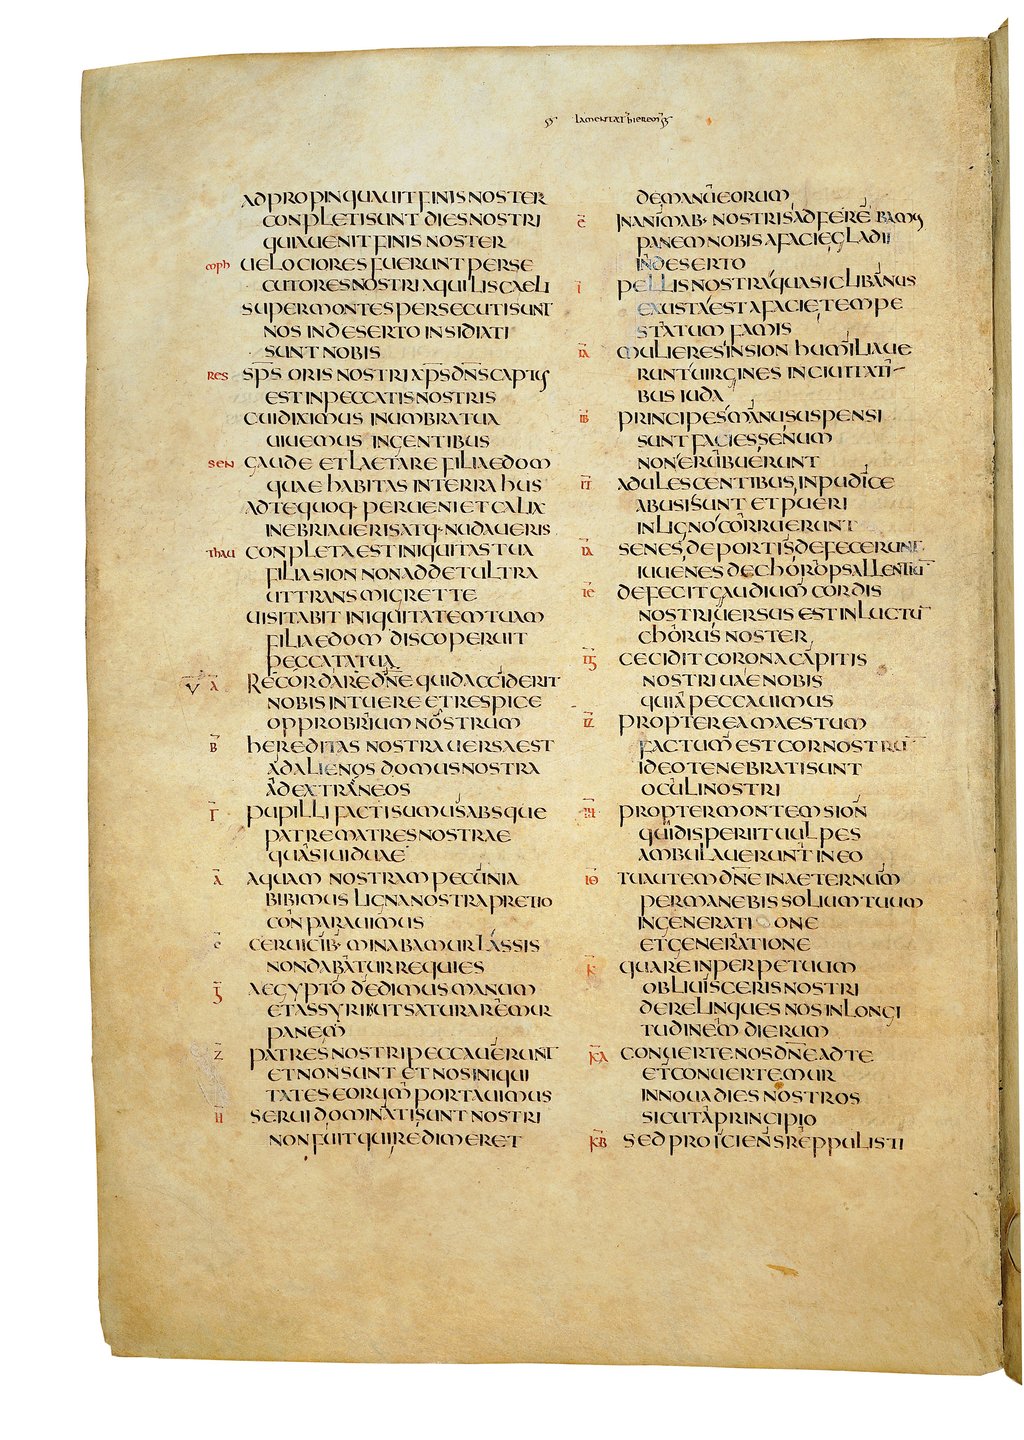 LAMENTAT HIEREM
ADPROPINQUAUIT FINIS NOSTER
CONPLETI SUNT DIES NOSTRI
QUIA UENIT FINIS NOSTER
coph UELOCIORES FUERUNT PERSE
CUTORES NOSTRI AQUILIS CAELI
SUPER MONTES PERSECUTI SUNT
NOS IN DESERTO INSIDIATI
SUNT NOBIS
RES SPS ORIS NOSTRI XPS DNS CAPTUS
EST IN PECCATIS NOSTRIS
CUI DIXIMUS IN UMBRA TUA
UIUEMUS IN GENTIBUS
SEN GAUDE ET LAETARE FILIA EDOM
QUAE HABITAS IN TERRA HUS
AD TE QUOQ· PERUENIET CALIX
INEBRIAUERIS ATQ· NUDAUERIS
THAU CONPLETA EST INIQUITAS TUA
FILIA SION NON ADDET ULTRA
UT TRANSMIGRET TE
UISITABIT INIQUITATEM TUAM
FILIA EDOM DISCOPERUIT
PECCATA TUA
V Α RECORDARE DNE QUID ACCIDERIT
NOBIS INTUERE ET RESPICE
OPPROBRIUM NOSTRUM
Β HEREDITAS NOSTRA UERSA EST
AD ALIENOS DOMUS NOSTRA
AD EXTRANEOS
Γ PUPILLI FACTI SUMUS ABSQUE
PATRE MATRES NOSTRAE
QUASI UIDUAE
Δ AQUAM NOSTRAM PECUNIA
BIBIMUS LIGNA NOSTRA PRETIO
CONPARAUIMUS
Ε CERUICIB· MINABAMUR LASSIS
NON DABATUR REQUIES
Ϛ AEGYPTO DEDIMUS MANUM
ET ASSYRIIS UT SATURAREMUR
PANEM
Ζ PATRES NOSTRI PECCAUERUNT
ET NON SUNT ET NOS INIQUI
TATES EORUM PORTAUIMUS
Η SERUI DOMINATI SUNT NOSTRI
NON FUIT QUI REDIMERET
DE MANU EORUM
Θ IN ANIMAB· NOSTRIS ADFEREBAMUS
PANEM NOBIS A FACIE GLADII
IN DESERTO
Ι PELLIS NOSTRA QUASI CLIBANUS
EXUSTA EST A FACIE TEMPE
STATUM FAMIS
ΙΑ MULIERES IN SION HUMILIAUE
RUNT UIRGINES IN CIUITATI
BUS IUDA
ΙΒ PRINCIPES MANU SUSPENSI
SUNT FACIES SENUM
NON ERUBUERUNT
ΙΓ ADULESCENTIBUS INPUDICE
ABUSI SUNT ET PUERI
IN LIGNO CORRUERUNT
ΙΔ SENES DE PORTIS DEFECERUNT
IUUENES DE CHORO PSALLENTIU
ΙΕ DEFECIT GAUDIUM CORDIS
NOSTRI UERSUS EST IN LUCTU
CHORUS NOSTER
ΙϚ CECIDIT CORONA CAPITIS
NOSTRI UAE NOBIS
QUIA PECCAUIMUS
ΙΖ PROPTEREA MAESTUM
FACTUM EST COR NOSTRU
IDEO TENEBRATI SUNT
OCULI NOSTRI
ΙΗ PROPTER MONTEM SION
QUI DISPERIIT UULPES
AMBULAUERUNT IN EO
ΙΘ TU AUTEM DNE IN AETERNUM
PERMANEBIS SOLIUM TUUM
IN GENERATIONE
ET GENERATIONE
Κ QUARE IN PERPETUUM
OBLIUISCERIS NOSTRI
DERELINQUES NOS IN LONGI
TUDINEM DIERUM
ΚΑ CONUERTE NOS DNE AD TE
ET CONUERTEMUR
INNOUA DIES NOSTROS
SICUT A PRINCIPIO
ΚΒ SED PROICIENS REPPULISTI